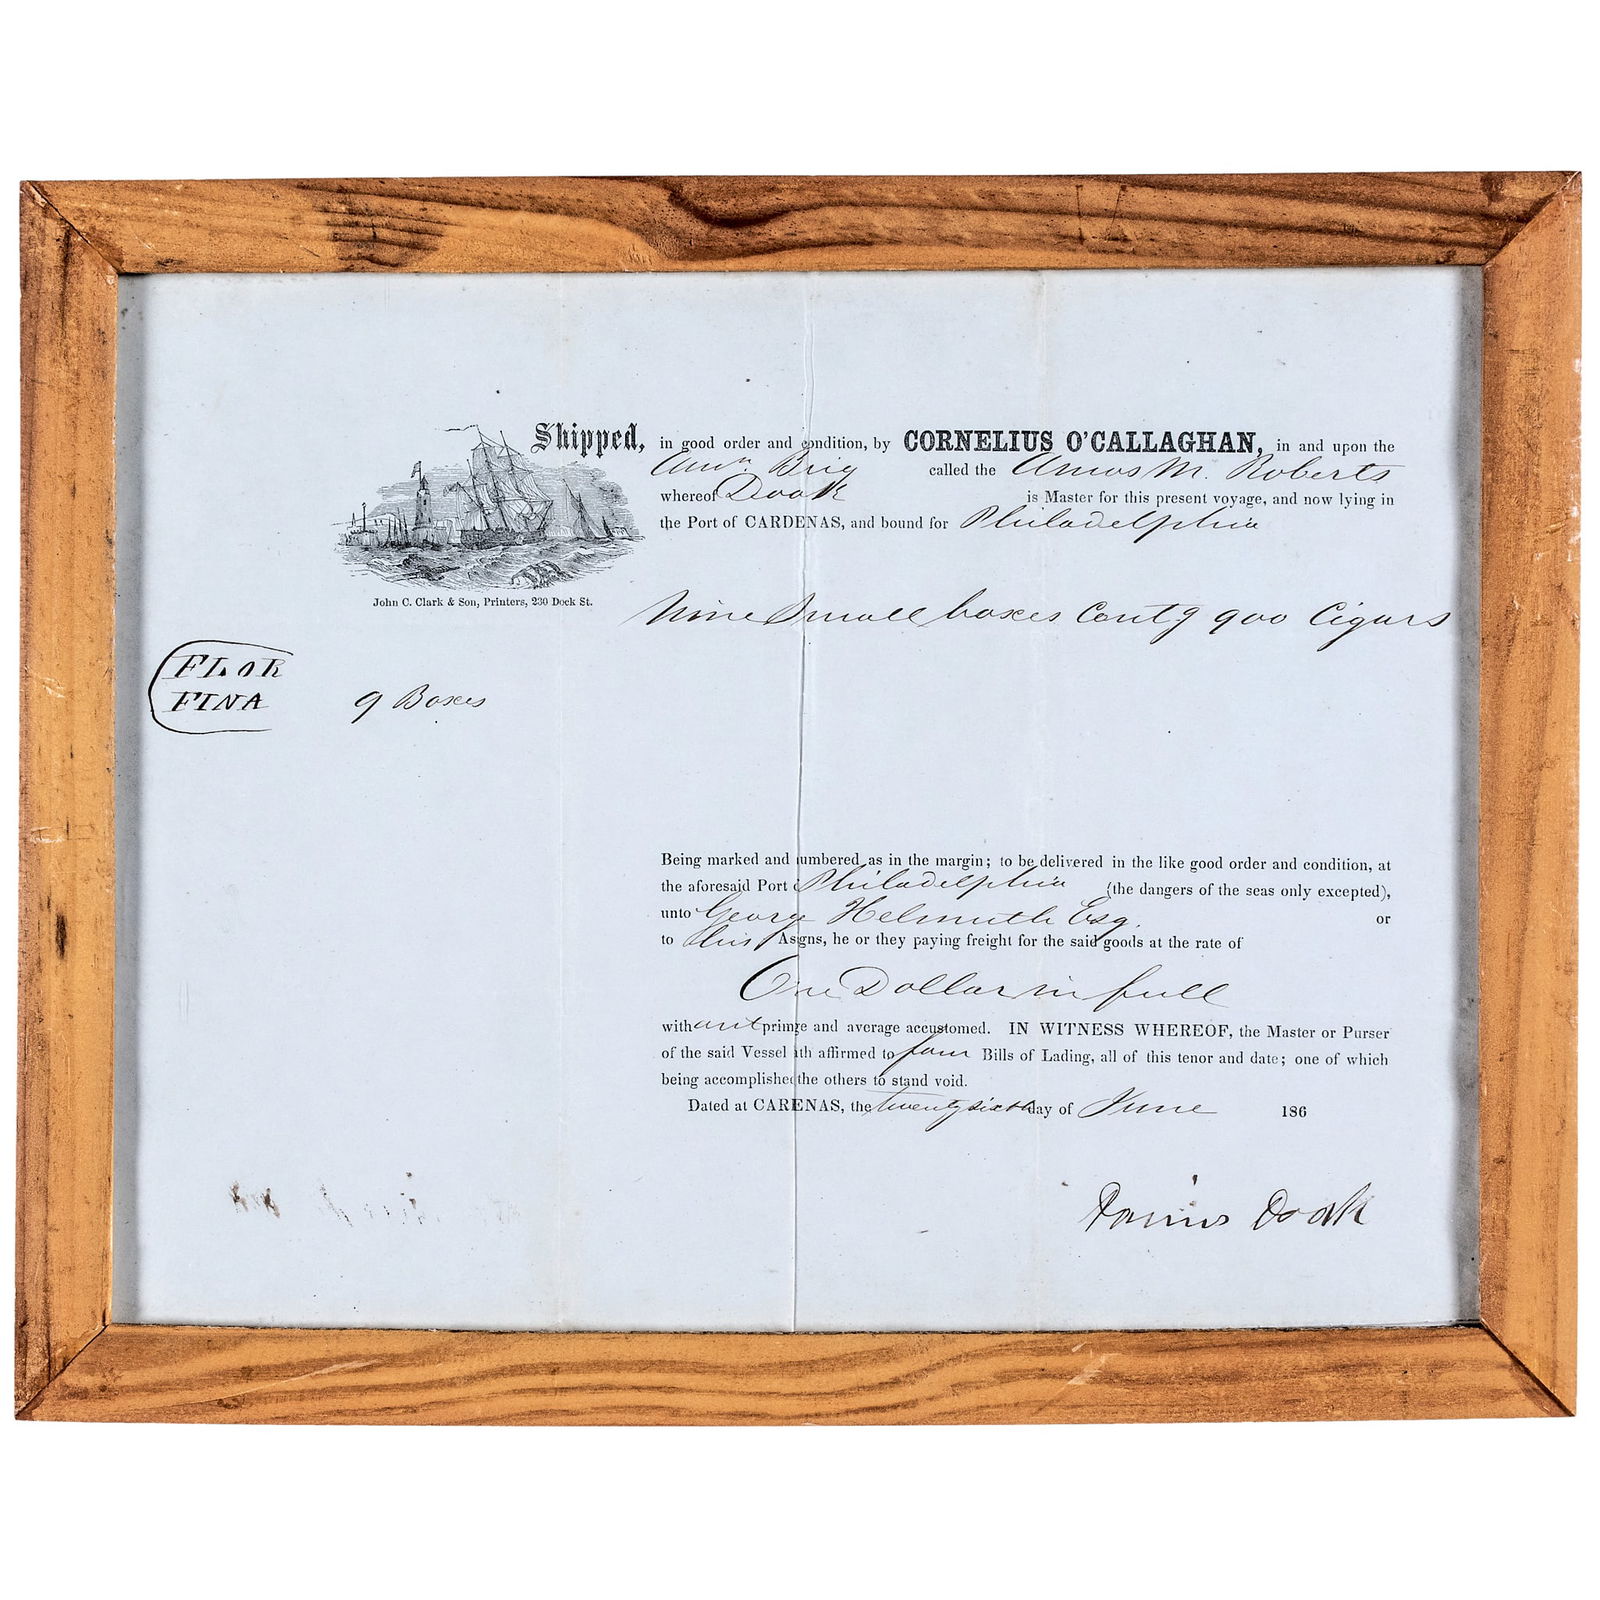 Shipped, in good order and condition, by CORNELIUS O'CALLAGHAN, in and upon the
Amn Brig called the Amos M. Roberts
whereof Doak is Master for this present voyage, and now lying in
the Port of CARDENAS, and bound for Philadelphia
John C. Clark & Son, Printers, 230 Dock St.
Nine Small boxes Contg 900 Cigars
FLOR
FINA 9 Boxes
Being marked and umbered as in the margin; to be delivered in the like good order and condition, at
the aforesaid Port Philadelphia (the dangers of the seas only excepted),
unto George Helmuth Esq. or
to his Asigns, he or they paying freight for the said goods at the rate of
One Dollar in full
without primge and average accustomed. IN WITNESS WHEREOF, the Master or Purser
of the said Vessel ath affirmed to four Bills of Lading, all of this tenor and date; one of which
being accomplished the others to stand void.
Dated at CARENAS, the twenty sixth day of June 186
Doak